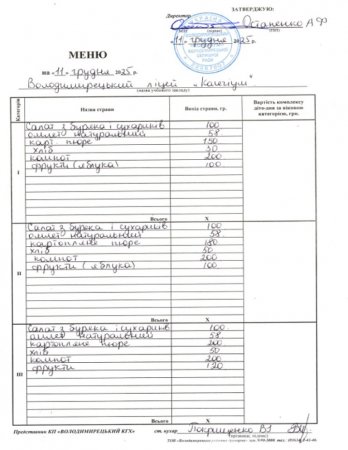 ЗАТВЕРДЖУЮ:
Директор Остапенко А Ф
"11" грудня 2025 р.
МЕНЮ
на "11" грудня 2025 р.
Володимирецький ліцей "Колегіум"
(назва учбового закладу)
Категорія Назва страви Вихід страви, гр. Вартість комплексу діто-дня за віковою категорією, грн.
I
Салат з буряка і сухариків 100
омлет натуральний 58
карт пюре 150
хліб 30
компот 200
фрукти (яблука) 100
Всього X
II
Салат з буряка і сухариків 100
омлет натуральний 58
картопляне пюре 180
хліб 50
компот 200
фрукти (яблука) 100
Всього X
III
Салат з буряка і сухариків 100
омлет натуральний 58
картопляне пюре 200
хліб 50
компот 200
фрукти 120
Всього X
Представник КП «ВОЛОДИМИРЕЦЬКИЙ КГХ» ст. кухар